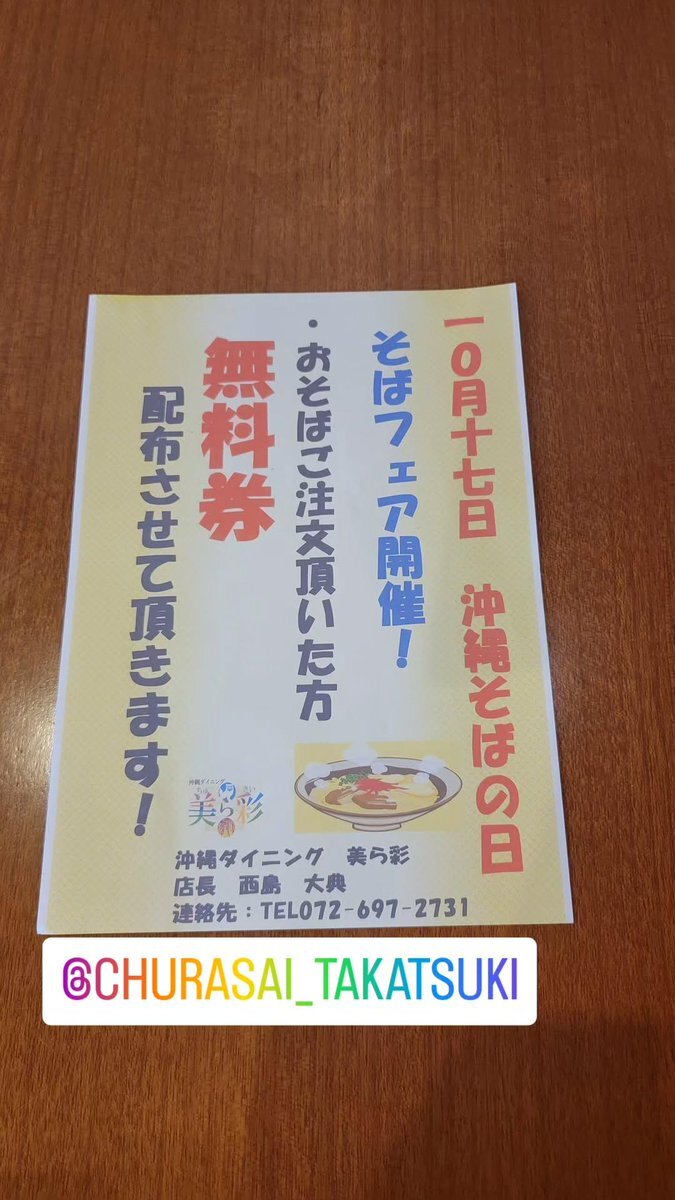 一0月十七日　沖縄そばの日
そばフェア開催！
・おそばご注文頂いた方
無料券
配布させて頂きます！
沖縄ダイニング
ちゅ　さい
美ら彩
沖縄ダイニング　美ら彩
店長　西島　大典
連絡先：TEL072-697-2731
@CHURASAI_TAKATSUKI